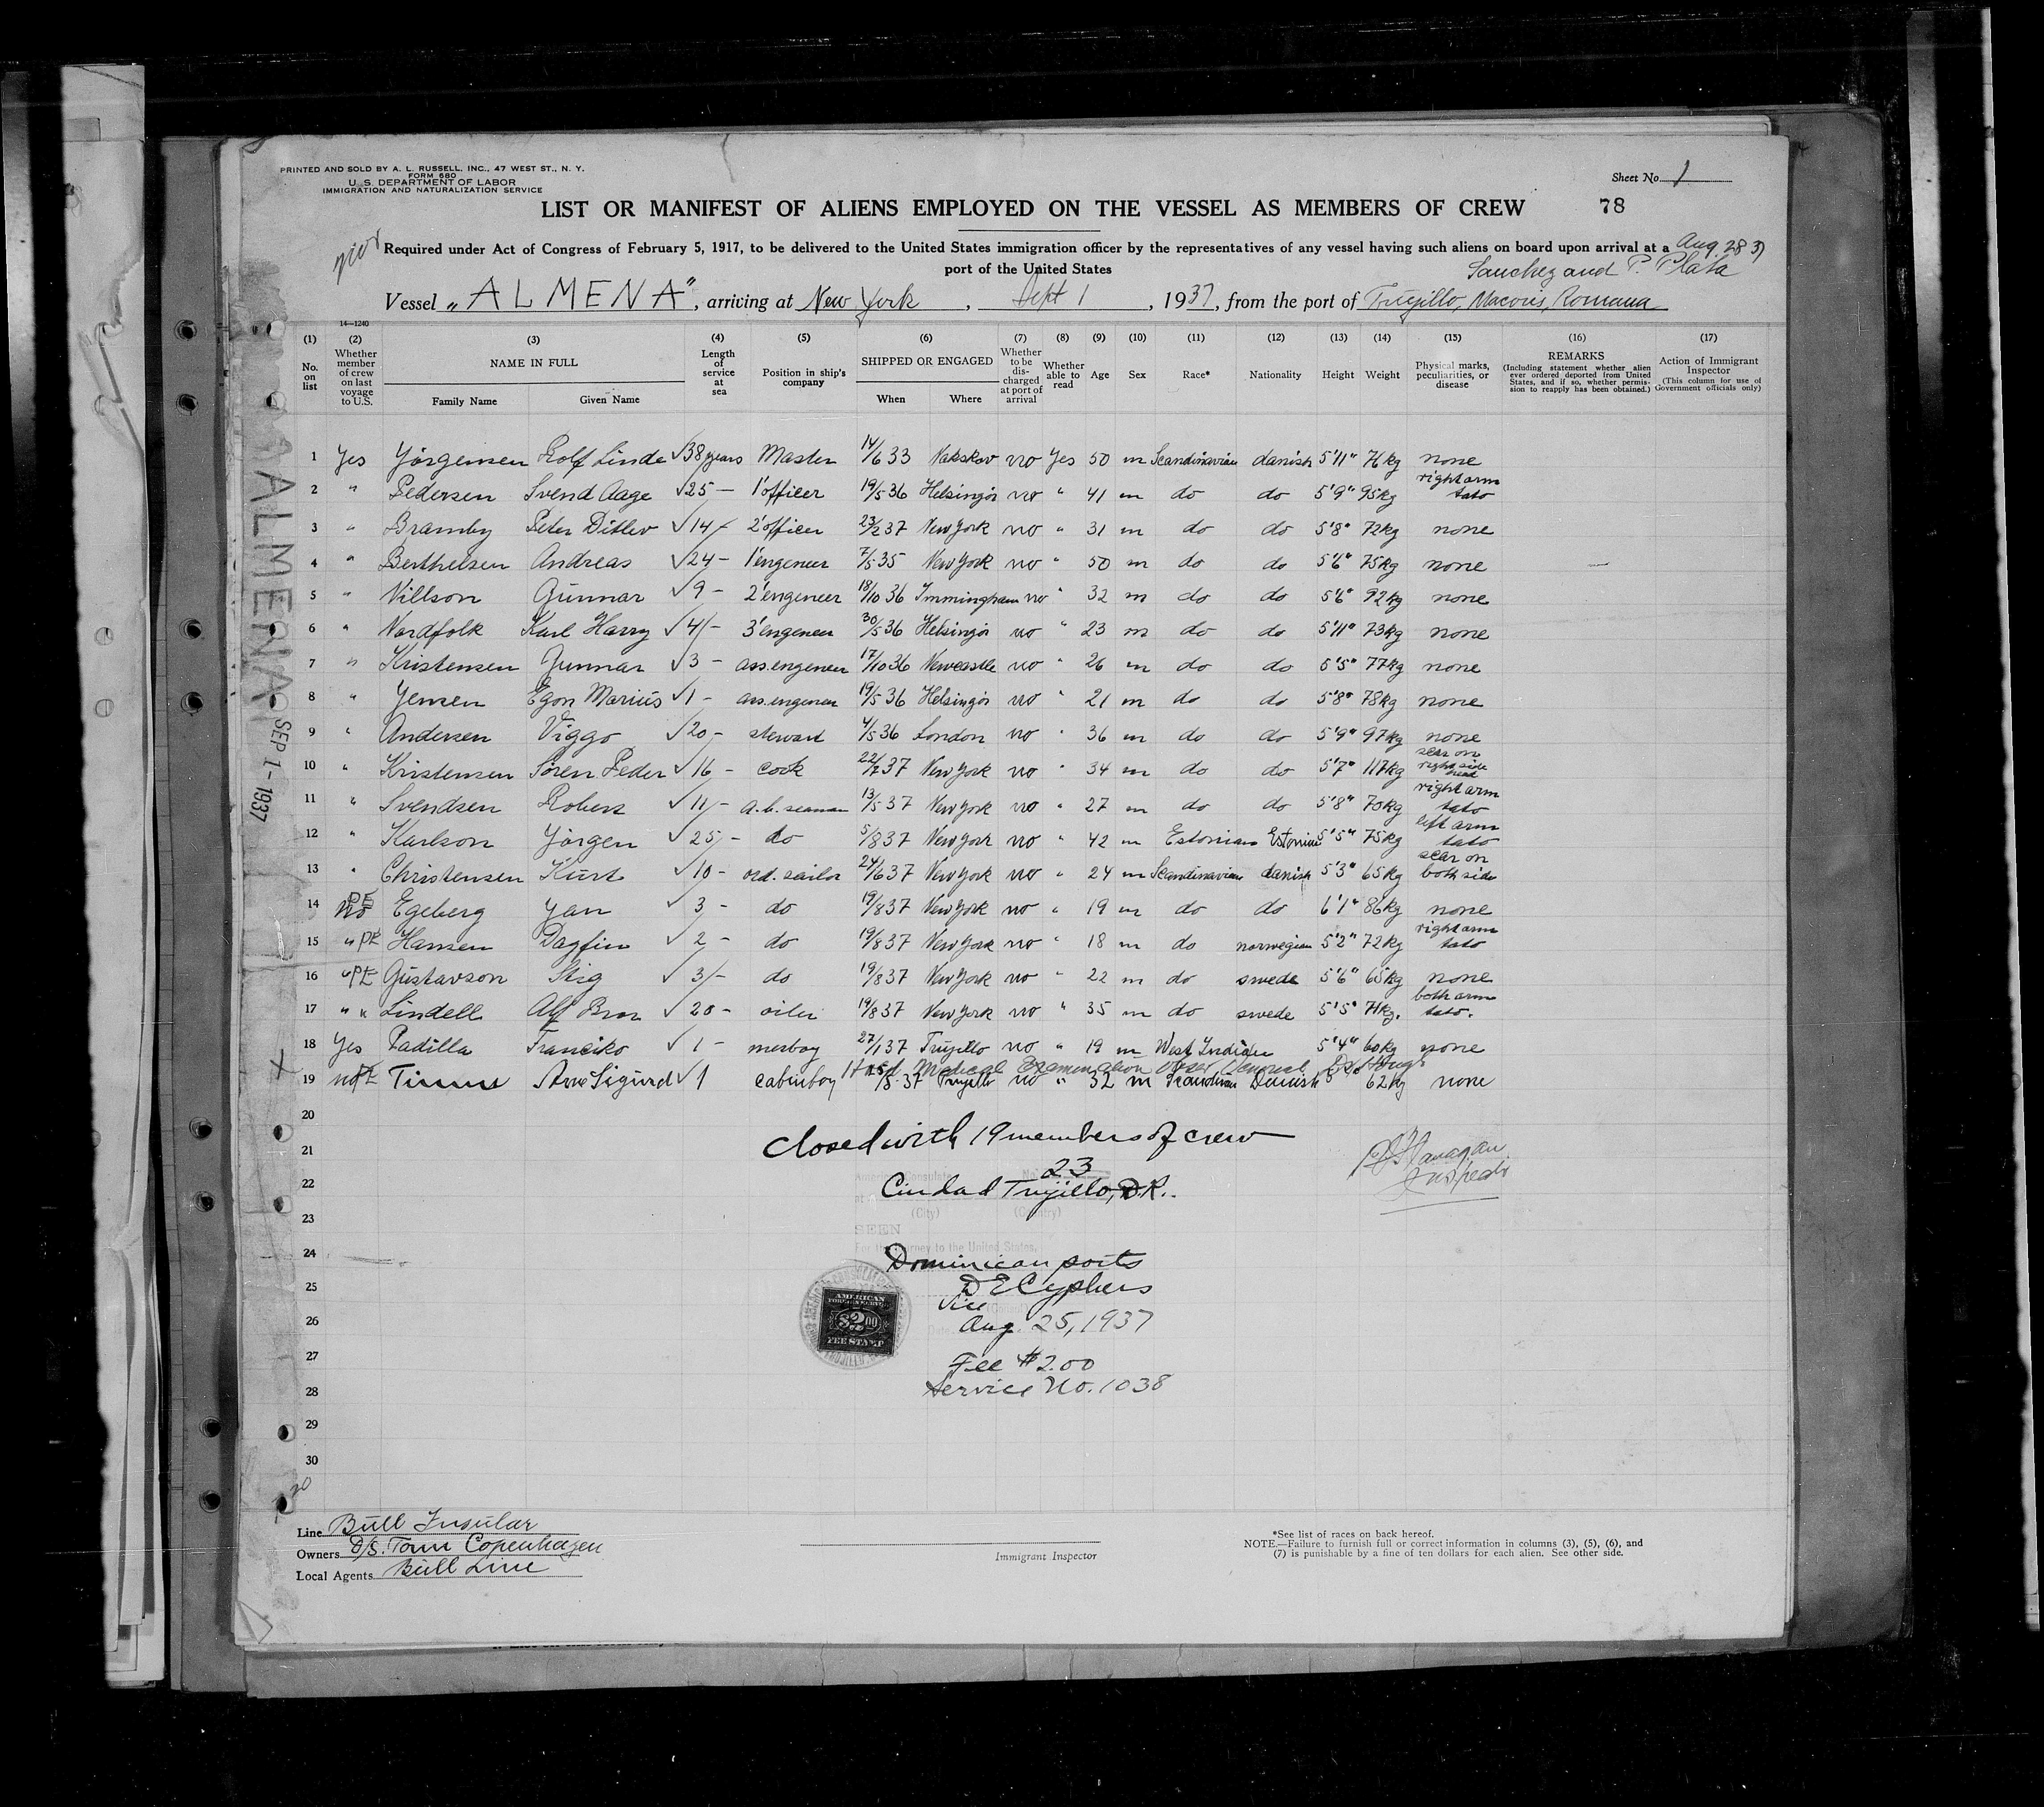 PRINTED AND SOLD BY A. L. RUSSELL, INC., 47 WEST ST., N. Y.
FORM 680
U. S. DEPARTMENT OF LABOR
IMMIGRATION AND NATURALIZATION SERVICE
Sheet No. 1
LIST OR MANIFEST OF ALIENS EMPLOYED ON THE VESSEL AS MEMBERS OF CREW 78
Required under Act of Congress of February 5, 1917, to be delivered to the United States immigration officer by the representatives of any vessel having such aliens on board upon arrival at a Aug. 28 37
port of the United States Sanchez and P. Plata
Vessel „ALMENA", arriving at New York, Sept 1, 1937, from the port of Trujillo, Macoris, Romana
14—1240
(1) (2) (3) (4) (5) (6) (7) (8) (9) (10) (11) (12) (13) (14) (15) (16) (17)
No. on list
Whether member of crew on last voyage to U.S.
NAME IN FULL
Family Name Given Name
Length of service at sea
Position in ship's company
SHIPPED OR ENGAGED
When Where
Whether to be discharged at port of arrival
Whether able to read
Age
Sex
Race*
Nationality
Height
Weight
Physical marks, peculiarities, or disease
REMARKS
(Including statement whether alien ever ordered deported from United States, and if so, whether permission to reapply has been obtained.)
Action of Immigrant Inspector
(This column for use of Government officials only)
1 Yes Yörgensen Rolf Linde √38 years Master 14/6 33 Nakskov no Yes 50 m Scandinavian danish 5'11" 76kg none
2 " Pedersen Svend Aage √25 — 1'officer 19/5 36 Helsingör no " 41 m do do 5'9" 95kg right arm tato
3 " Bramby Peter Ditlev √14 - 2'officer 23/2 37 New York no " 31 m do do 5'8" 72kg none
4 " Berthelsen Andreas √24 - 1'engeneer 7/5 35 New York no " 50 m do do 5'6" 75kg none
5 " Nillson Gunnar √9 - 2'engeneer 18/10 36 Immingham no " 32 m do do 5'6" 92kg none
6 " Nordfolk Karl Harry √4 - 3'engeneer 30/5 36 Helsingör no " 23 m do do 5'11" 73kg none
7 " Kristensen Gunnar √3 - ass.engeneer 17/10 36 Newcastle no " 26 m do do 5'5" 77kg none
8 " Yensen Egon Marius √1 - ass.engeneer 19/5 36 Helsingör no " 21 m do do 5'8" 78kg none
9 " Andersen Viggo √20 - steward 4/5 36 London no " 36 m do do 5'9" 97kg none
10 " Kristensen Sören Peder √16 - cook 22/7 37 New York no " 34 m do do 5'7" 117kg scar on right side head
11 " Svendsen Robert √11 - a.b. seaman 13/5 37 New York no " 27 m do do 5'8" 70kg right arm tato
12 " Karlson Yörgen √25 - do 5/8 37 New York no " 42 m Estonian Estonian 5'5" 75kg left arm tato
13 " Christensen Kurt √10 - ord. sailor 24/6 37 New York no " 24 m Scandinavian danish 5'3" 65kg scar on both side
14 no PE Egeberg Yan √ 3 - do 19/8 37 New York no " 19 m do do 6'1" 86kg none
15 " PE Hansen Dagfin √ 2 - do 19/8 37 New York no " 18 m do norwegian 5'2" 72kg right arm tato
16 " PE Gustavson Stig √ 3 - do 19/8 37 New York no " 22 m do swede 5'6" 65kg none
17 " " Lindell Alf Bror √ 20 - oiler 19/8 37 New York no " 35 m do swede 5'5" 71kg. both arm tato.
18 Yes Padilla Francisko √ 1 - mesboy 27/1 37 Trujillo no " 19 m West Indian 5'4" 60kg none
Medical Examination
19 no PE Timm Arne Sigurd √ 1 cabinboy /8.37 Trujillo no " 32 m Scandinav Danish 62kg none
20
21
22
23
24
25
26
27
28
29
30
closed with 19 members of crew
23
Ciudad Trujillo, D.R.
(City) (Country)
SEEN
For the journey to the United States,
Dominican ports
D E Cyphers
Vice
Aug. 25, 1937
Fee $2.00
Service No. 1038
AMERICAN
FOREIGN SERVICE
$2.00
FEE STAMP
Flanagan
Inspector
ALMENA
SEP 1 - 1937
Line Bull Insular
Owners D/S. Torm Copenhagen
Local Agents Bull Line
Immigrant Inspector
*See list of races on back hereof.
NOTE.—Failure to furnish full or correct information in columns (3), (5), (6), and
(7) is punishable by a fine of ten dollars for each alien. See other side.